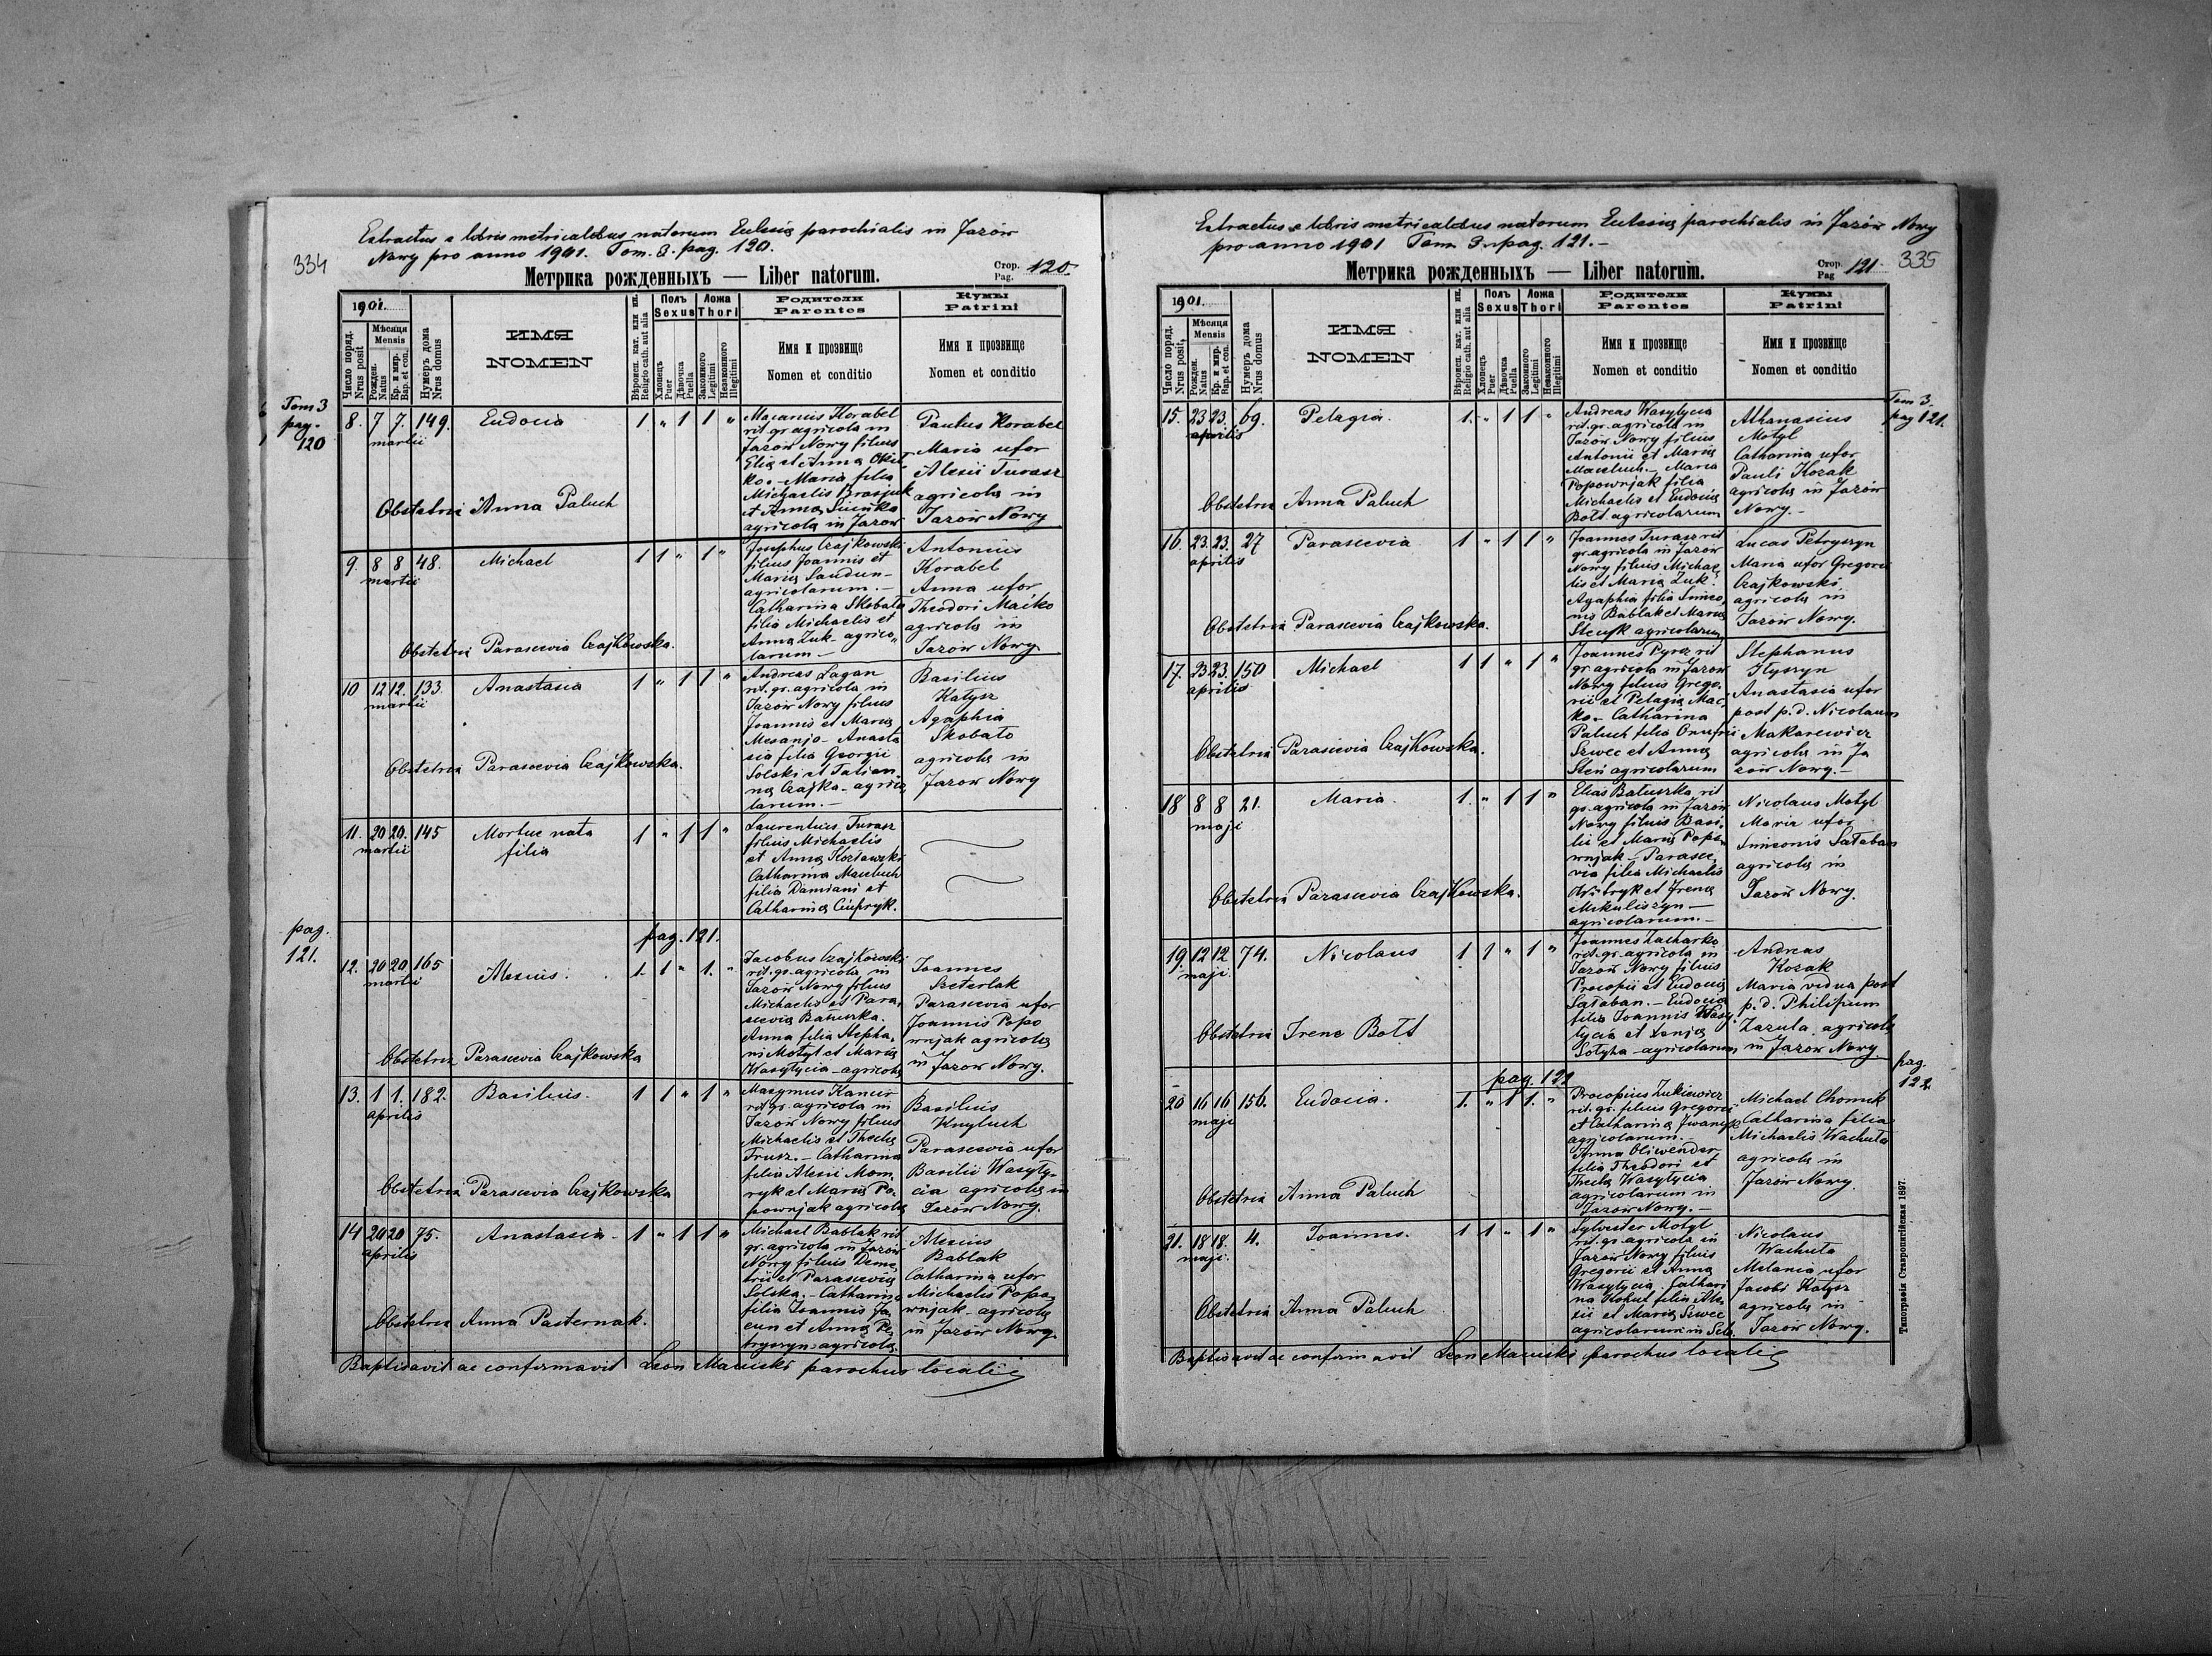 Extractus e libris metricalibus natorum Eclesiæ parochialis in Jazów
Nowy pro anno 1901. Tom. 3. pag. 120.
334
Метрика рожденныхъ — Liber natorum.
Стор. Pag. 120.
1901.
Число поряд. Nrus posit
Мѣсяця Mensis
Рожден. Natus
Кр. и мѵр. Bap. et con.
Нумеръ дома Nrus domus
ИМЯ
NOMEN
Вѣроисп. кат. или ин. Religio cath. aut alia
Полъ Sexus
Хлопецъ Puer
Дѣвочка Puella
Ложа Thori
Законного Legitimi
Незаконного Illegitimi
Родители
Parentes
Имя и прозвище
Nomen et conditio
Кумы
Patrini
Имя и прозвище
Nomen et conditio
Tom 3
pag.
120
8. 7 7. 149. Eudocia 1. " 1 1 "
martii
Macarius Korabel
rit. gr. agricola in
Jazów Nowy filius
Eliæ et Annæ
ko. - Maria filia
Michaelis Brasjuk
et Annæ
agricolæ in Jazów
Paulus Korabel
Maria uxor
Alexii Turasz
agricolæ in
Jazów Nowy
Obstetrix Anna Paluch
9. 8 8 48. Michael 1 1 " 1 "
martii
Josephus Czajkowski
filius Joannis et
Mariæ Saudun -
agricolarum. -
Catharina Skobato
filia Michaelis et
Annæ Zuk - agrico-
larum -
Antonius
Korabel
Anna uxor
Theodori Maćko
agricolæ in
Jazów Nowy
Obstetrix Parascevia Czajkowska.
10 12 12. 133. Anastasia 1 " 1 1 "
martii
Andreas Łagan
rit. gr. agricola in
Jazów Nowy filius
Joannis et Mariæ
Mesanjo - Anasta
sia filia Georgii
Solski et Tatian-
næ Czajka - agrico
larum. -
Basilius
Katysz
Agaphia
Skobato
agricolæ in
Jazow Nowy
Obstetrix Parascevia Czajkowska.
11. 20 20. 145 Mortue nata 1 " 1 1 "
martii filia
Laurentius Turasz
filius Michaelis
et Annæ
Catharina Maceluch
filia Damiani et
Catharinæ Ciupryk.
pag.
121.
pag. 121.
12. 20 20 165 Alexius. 1. 1 " 1. "
martii
Jacobus Czajkowski
rit. gr. agricola in
Jazów Nowy filius
Michaelis et Para-
sceviæ Batuszka.
Anna filia Stepha-
ni Motyl et Mariæ
Wasytycia - agricolæ
Joannes
Szeterlak
Parascevia uxor
Joannis Popo
wnjak agricolæ
in Jazow Nowy.
Obstetrix Parascevia Czajkowska
13. 1 1. 182. Basilius. 1 1 " 1 "
aprilis
Maxymus Kancir
rit. gr. agricola in
Jazów Nowy filius
Michaelis et Theclæ
Frusz. - Catharina
filia Alexii Mom-
ryk et Mariæ Po-
pownjak agricolæ
Basilius
Knyluch
Parascevia uxor
Basilii Wasyty-
cia agricolæ in
Jazów Nowy.
Obstetrix Parascevia Czajkowska
14 20 20 75. Anastasia - 1 " 1 1 "
aprilis
Michael Bablak rit
gr. agricola in Jazów
Nowy filius Deme
trii et Parasceviæ
Solska. - Catharina
filia Joannis Ja
cun et Annæ Pe
tryszyn agricolæ.
Alexius
Bablak
Catharina uxor
Michaelis Popo-
wnjak - agricolæ
in Jazów Nowy.
Obstetrix Anna Pasternak.
Baptisavit ac confirmavit Leon Macuski parochus localis
Extractus e libris metricalibus natorum Eclesiæ parochialis in Jazów Nowy
pro anno 1901 Tom 3. pag. 121. -
335
Метрика рожденныхъ — Liber natorum.
Стор. Pag 121
1901.
Число поряд. Nrus posit
Мѣсяця Mensis
Рожден. Natus
Кр. и мѵр. Bap. et con.
Нумеръ дома Nrus domus
ИМЯ
NOMEN
Вѣроисп. кат. или ин. Religio cath. aut alia
Полъ Sexus
Хлопецъ Puer
Дѣвочка Puella
Ложа Thori
Законного Legitimi
Незаконного Illegitimi
Родители
Parentes
Имя и прозвище
Nomen et conditio
Кумы
Patrini
Имя и прозвище
Nomen et conditio
Tom 3.
pag 121.
15. 23 23. 69. Pelagia. 1. " 1 1 "
aprilis
Andreas Wasytycia
rit. gr. agricola in
Jazów Nowy filius
Antonii et Mariæ
Maceluch. - Maria
Popownjak filia
Michaelis et Eudociæ
Bott agricolarum
Athanasius
Motyl
Catharina uxor
Pauli Kozak
agricolæ in Jazów
Nowy. -
Obstetrix Anna Paluch
16. 23. 23. 27 Parascevia 1 " 1 1 "
aprilis
Joannes Turasz rit
gr. agricola in Jazów
Nowy filius Michae
lis et Mariæ Zuk.
Agaphia filia Simeo
nis Bablak et Mariæ
Stecyk agricolarum
Lucas Petryszyn
Maria uxor Gregorii
Czajkowski
agricolæ in
Jazów Nowy.
Obstetrix Parascevia Czajkowska.
17. 23 23. 150 Michael 1 1 " 1 "
aprilis
Joannes Pyrcz rit
gr. agricola in Jazow
Nowy filius Grego-
rii et Pelagiæ Mać
ko - Catharina
Paluch filia Onufrii
Szwec et Annæ
Steń agricolarum
Stephanus
Ilyszyn
Anastasia uxor
post p. d. Nicolaum
Makarewicz
agricolæ in Ja
zow Nowy. -
Obstetrix Parascevia Czajkowska.
18 8 8 21. Maria. 1. " 1 1 "
maji
Elias Batuszka rit
gr. agricola in Jazów
Nowy filius Basi-
lii et Mariæ Popo-
wnjak - Parasce
via filia Michaelis
Witryk et Irenæ
Mikuliszyn -
agricolarum. -
Nicolaus Motyl
Maria uxor
Simeonis Sałaban
agricolæ in
Jazów Nowy.
Obstetrix Parascevia Czajkowska.
19. 12 12 74. Nicolaus 1 1 " 1 "
maji
Joannes Zacharko
rit. gr. agricola in
Jazów Nowy filius
Procopii et Eudociæ
Sałaban. - Eudocia
filia Joannis Wasy
tycia et Xeniæ
Sotyha - agricolarum
Andreas
Kozak
Maria vidua post
p. d. Philipum
Zazula agricolæ
in Jazow Nowy.
Obstetrix Irene Bott
pag.
122
pag. 122
20 16 16 156. Eudocia. 1. " 1 1. "
maji
Procopius Zukiewicz
rit. gr. filius Gregorii
et Catharinæ
agricolarum. -
Anna Oliwender
filia Theodori et
Theclæ Wasytycia
agricolarum in
Jazów Nowy. -
Michael Chomik
Catharina filia
Michaelis Wachuta
agricolæ in
Jazów Nowy.
Obstetrix Anna Paluch
21. 18 18. 4. Joannes. 1 1 " 1 "
maji.
Sylvester Motyl
rit. gr. agricola in
Jazów Nowy filius
Gregorii et Annæ
Wasytycia. Cathari
na Kohut filia Ale
xii et Mariæ Szwec
agricolarum in
Nicolaus
Wachuta
Melania uxor
Jacobi Katysz
agricolæ in
Jazów Nowy.
Obstetrix Anna Paluch
Baptisavit ac confirmavit Leon Macuski parochus localis
Типографія Ставропигійская 1897.